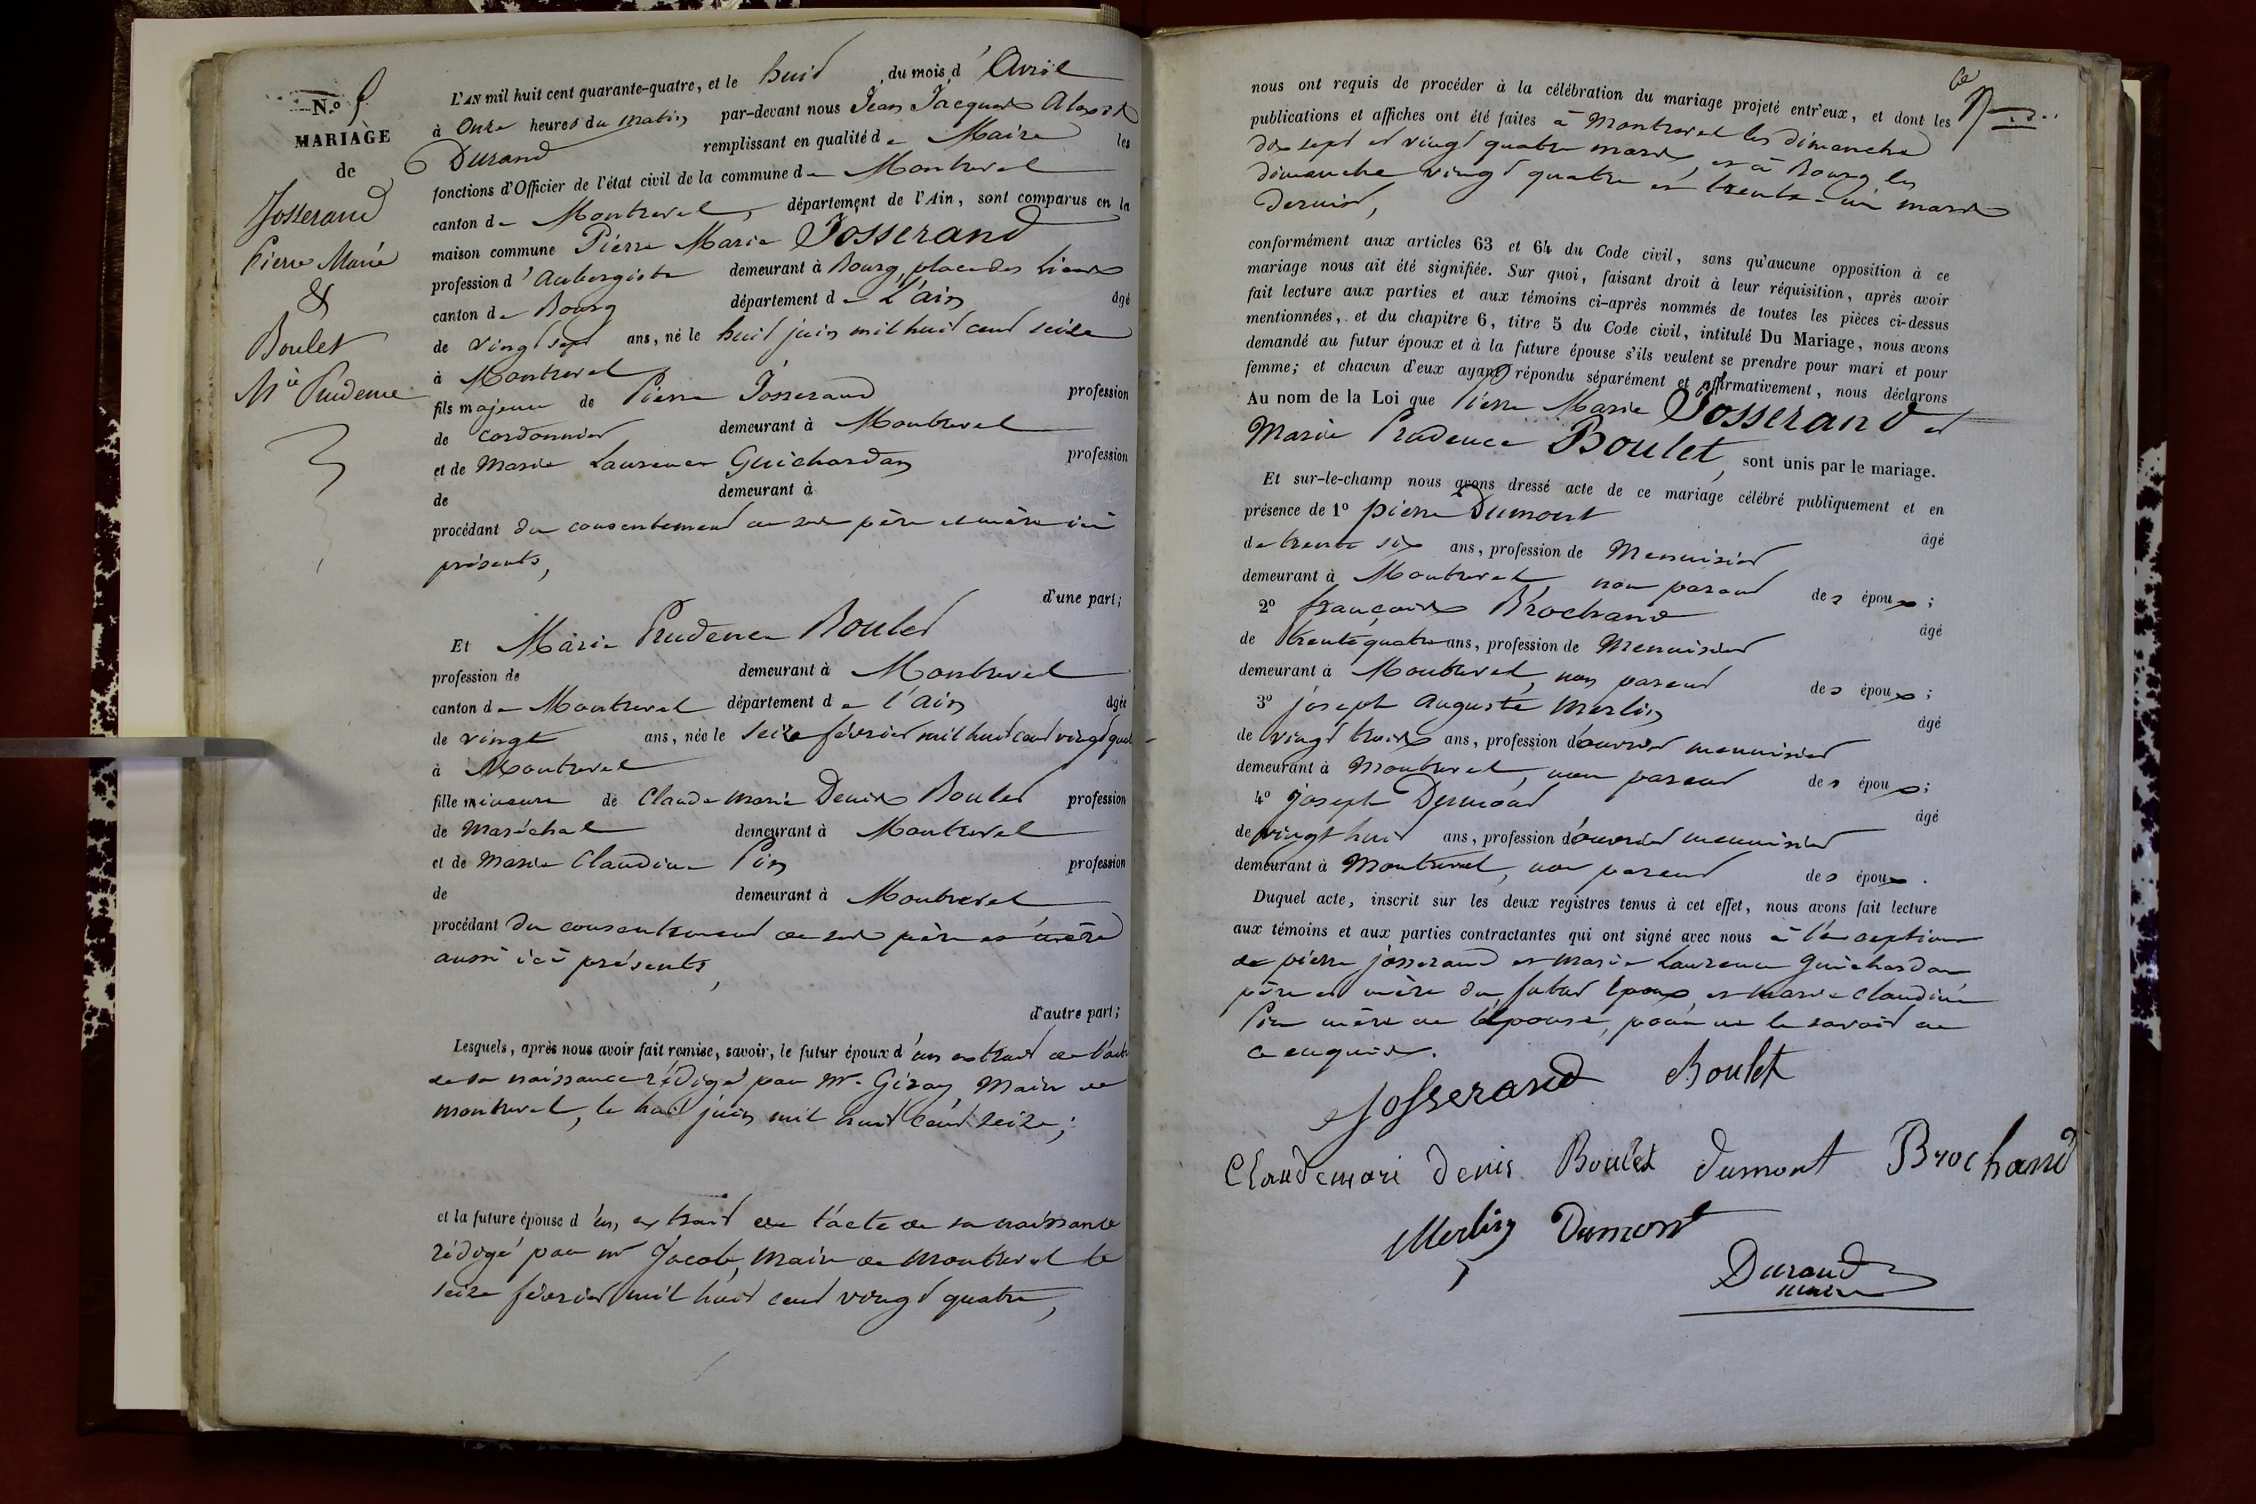 N.º 8
MARIAGE
de
Josserand
Pierre Marie
&
Boulet
Mie Prudence
L'AN mil huit cent quarante-quatre, et le huit du mois d'Avril
à Onze heures du matin par-devant nous Jean Jacques
Durand remplissant en qualité de Maire les
fonctions d'Officier de l'état civil de la commune de Montrevel
canton de Montrevel, département de l'Ain, sont comparus en la
maison commune Pierre Marie Josserand
profession d'Aubergiste demeurant à Bourg, place des
canton de Bourg département de L'ain âgé
de vingt sept ans, né le huit juin mil huit cent seize
à Montrevel
fils majeur de Pierre Josserand profession
de cordonnier demeurant à Montrevel
et de Marie Laurence Guichardan profession
de demeurant à
procédant du consentement de ses père et mère ici
présents,
d'une part;
Et Marie Prudence Boulet
profession de demeurant à Montrevel
canton de Montrevel département de l'ain âgée
de vingt ans, née le seize février mil huit cent vingt quat
à Montrevel
fille mineure de Claude Marie Denis Boulet profession
de Maréchal demeurant à Montrevel
et de Marie Claudine Pin profession
de demeurant à Montrevel
procédant du consentement de ses père et mère
aussi ici présents,
d'autre part;
Lesquels, après nous avoir fait remise, savoir, le futur époux d'un extrait de l'acte
de sa naissance rédigé par Mr. Maire de
montrevel, le huit juin mil huit cent seize;
et la future épouse d'un extrait de l'acte de sa naissance
rédigé par mr Jacob, Maire de Montrevel le
seize février mil huit cent vingt quatre,
nous ont requis de procéder à la célébration du mariage projeté entr'eux, et dont les
publications et affiches ont été faites à Montrevel les dimanche
dix sept et vingt quatre mars, et à Bourg les
dimanche vingt quatre et trente-un mars
dernier,
conformément aux articles 63 et 64 du Code civil, sans qu'aucune opposition à ce
mariage nous ait été signifiée. Sur quoi, faisant droit à leur réquisition, après avoir
fait lecture aux parties et aux témoins ci-après nommés de toutes les pièces ci-dessus
mentionnées, et du chapitre 6, titre 5 du Code civil, intitulé Du Mariage, nous avons
demandé au futur époux et à la future épouse s'ils veulent se prendre pour mari et pour
femme; et chacun d'eux ayant répondu séparément et affirmativement, nous déclarons
Au nom de la Loi que Pierre Marie Josserand et
Marie Prudence Boulet, sont unis par le mariage.
Et sur-le-champ nous avons dressé acte de ce mariage célébré publiquement et en
présence de 1º pierre Dumont âgé
de trente six ans, profession de Menuisier
demeurant à Montrevel, non parent des époux;
2º françois Brochand âgé
de trente quatre ans, profession de Menuisier
demeurant à Montrevel, non parent des époux;
3º joseph auguste Merlin âgé
de vingt trois ans, profession d'ouvrier menuisier
demeurant à Montrevel, non parent des époux;
4º joseph Dumont âgé
de vingt huit ans, profession d'ouvrier menuisier
demeurant à Montrevel, non parent des époux.
Duquel acte, inscrit sur les deux registres tenus à cet effet, nous avons fait lecture
aux témoins et aux parties contractantes qui ont signé avec nous à l'exception
de pierre josserand et marie Laurence guichardan
père et mère du futur époux, et marie claudine
Pin mère de l'épouse, pour ne le savoir de
ce enquis.
Josserand Boulet
Claudemari denis Boulet dumont Brochand
Merlin Dumont
Durand
maire